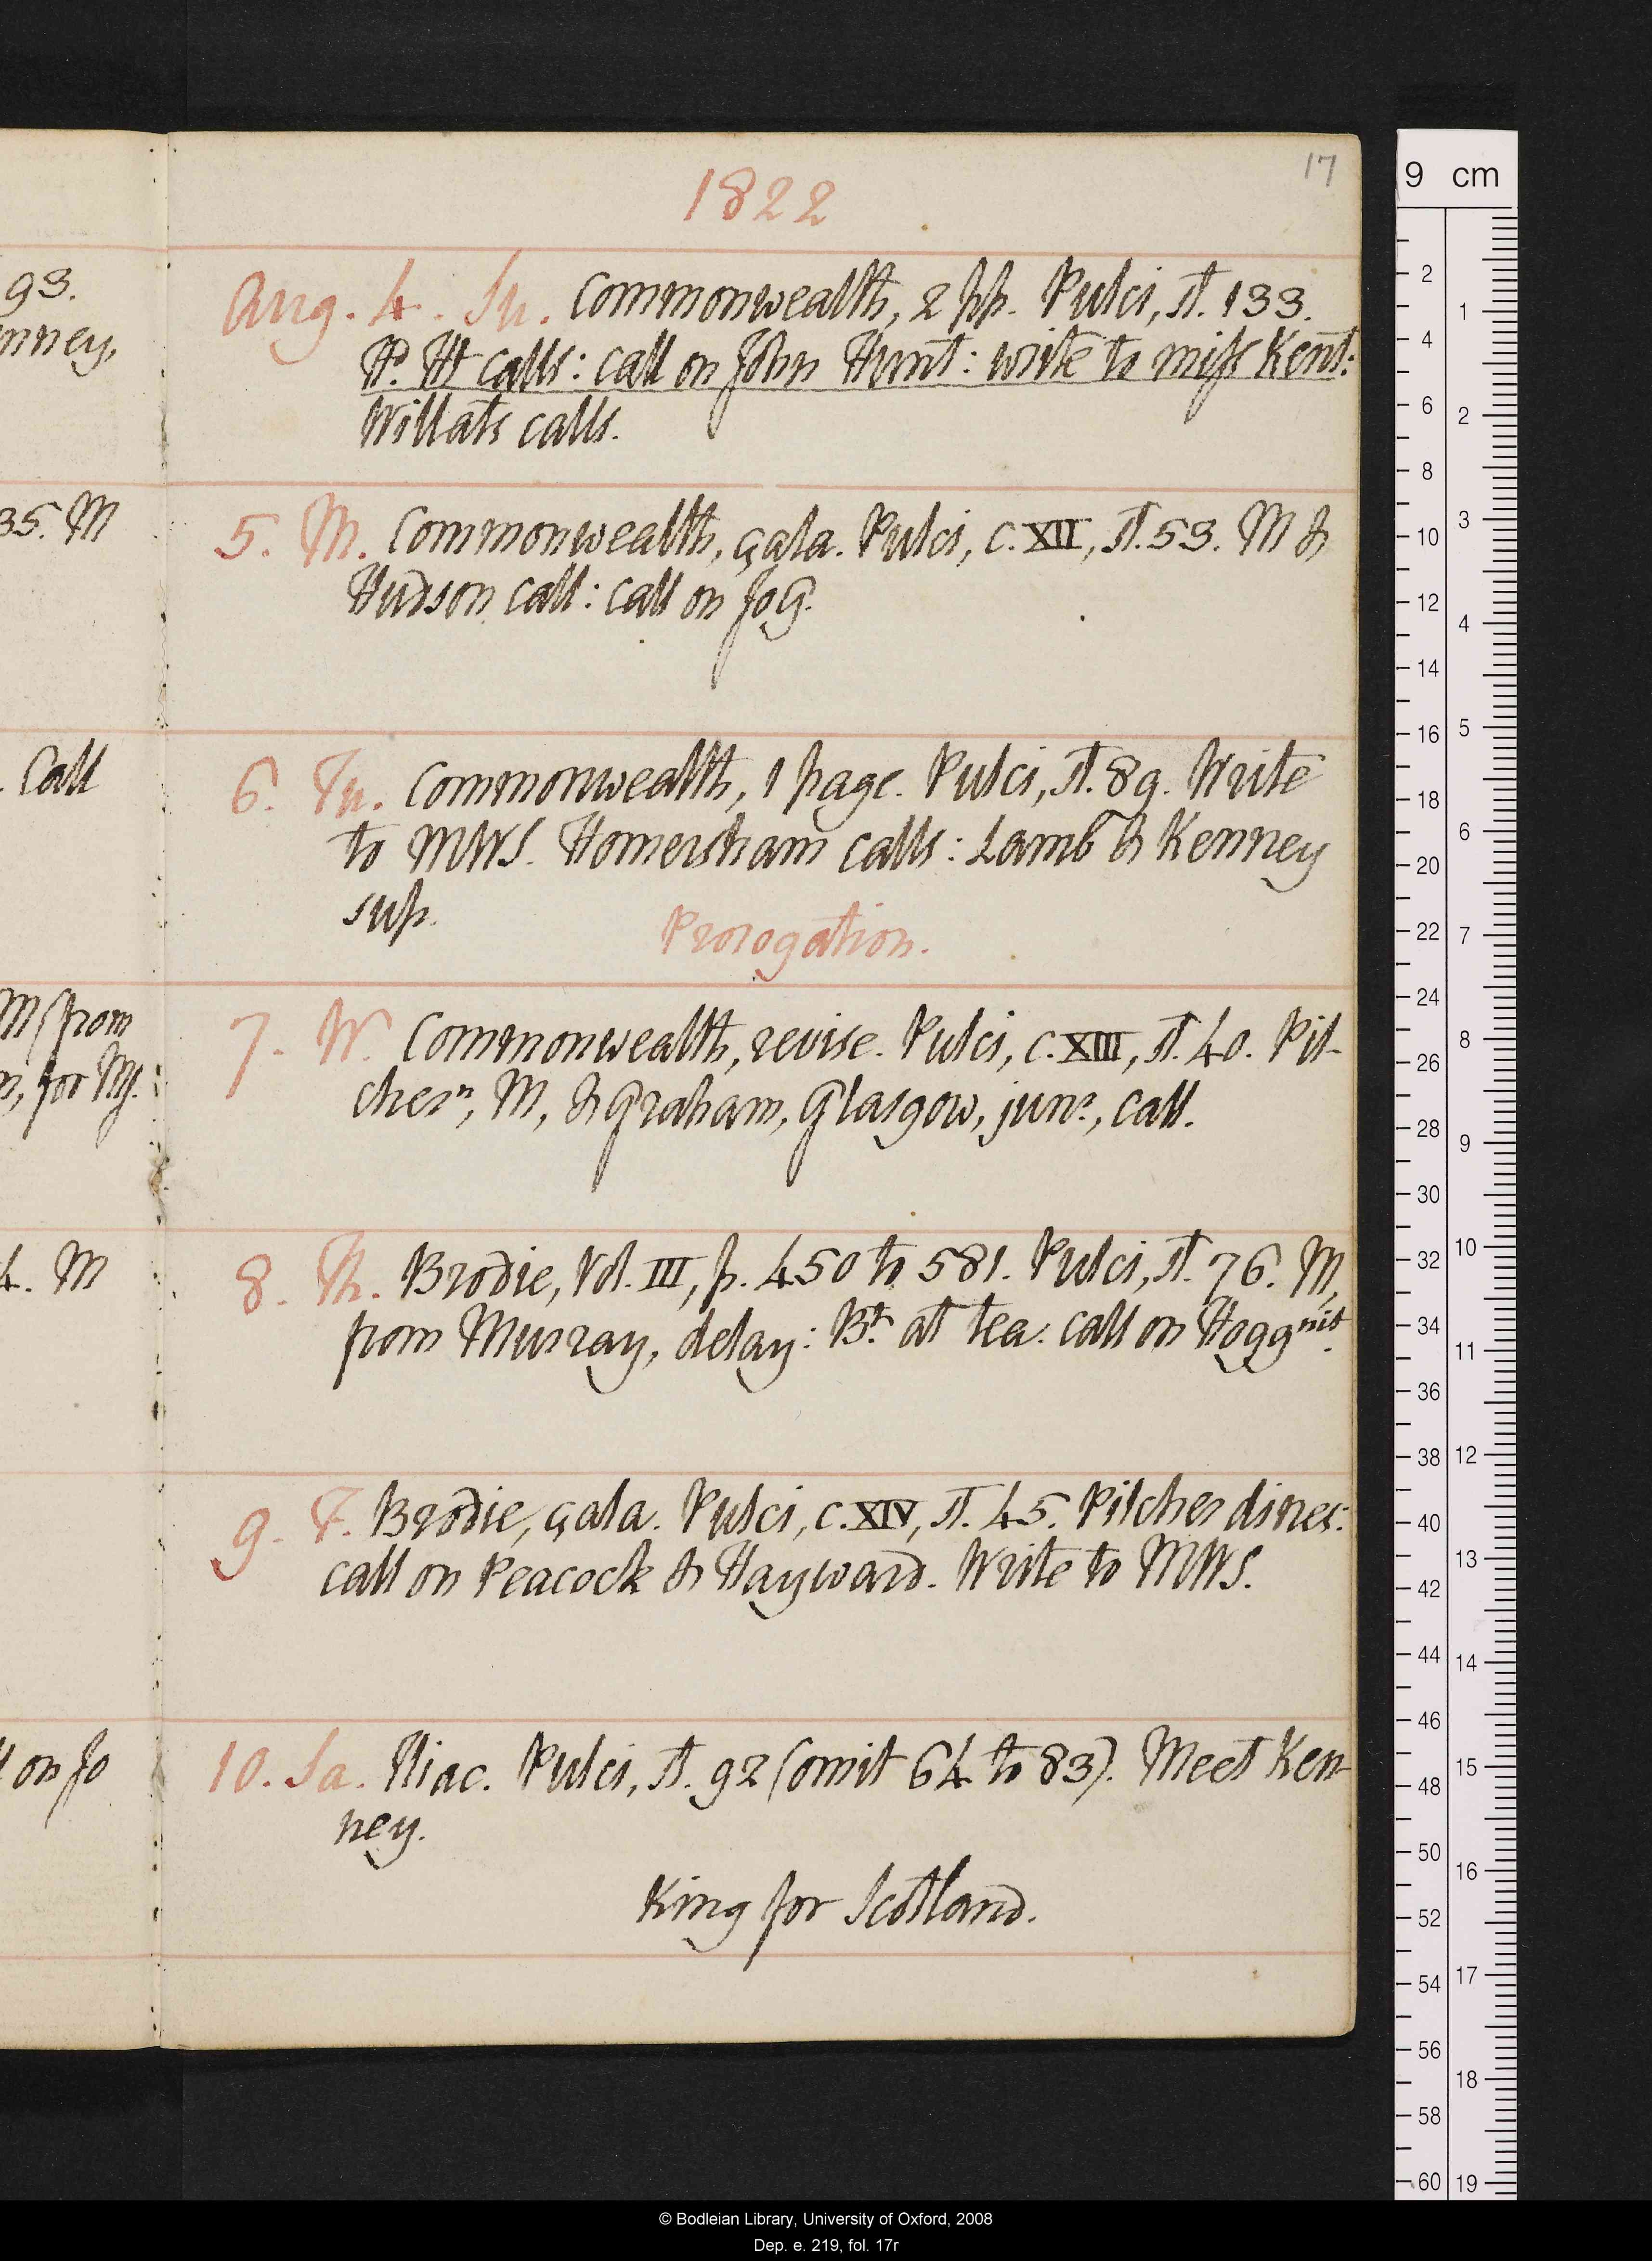 17
1822
93.
nney,
Aug. 4. Su. Commonwealth, 2 pp. Pulci, st. 133.
H. Ht calls: call on John Hunt: write to miss Kent:
Willats calls.
35. M
5. M. Commonwealth, çala. Pulci, c. XII, st. 53. M &
Hudson call: call on Jo G.
Call
6. Tu. Commonwealth, 1 page. Pulci, st. 89. Write
to MWS. Homersham calls: Lamb & Kenney
sup.
Prorogation.
M (from
n, for MJ.
7. W. Commonwealth, revise. Pulci, c. XIII, st. 40. Pil-
cher n, M, & Graham, Glasgow, junr., call.
4. M
8. Th. Brodie, Vol. III, p. 450 to 581. Pulci, st. 76. M,
from Murray, delay: Bt. at tea: call on Hogg nit.
9. F. Brodie, çala. Pulci, c. XIV, st. 45. Pilcher dines:
call on Peacock & Hayward. Write to MWS.
ll on Jo
10. Sa. Iliac. Pulci, st. 92 (omit 64 to 83). Meet Ken-
ney.
King for Scotland.
9 cm
2 4 6 8 10 12 14 16 18 20 22 24 26 28 30 32 34 36 38 40 42 44 46 48 50 52 54 56 58 60
1 2 3 4 5 6 7 8 9 10 11 12 13 14 15 16 17 18 19
© Bodleian Library, University of Oxford, 2008
Dep. e. 219, fol. 17r